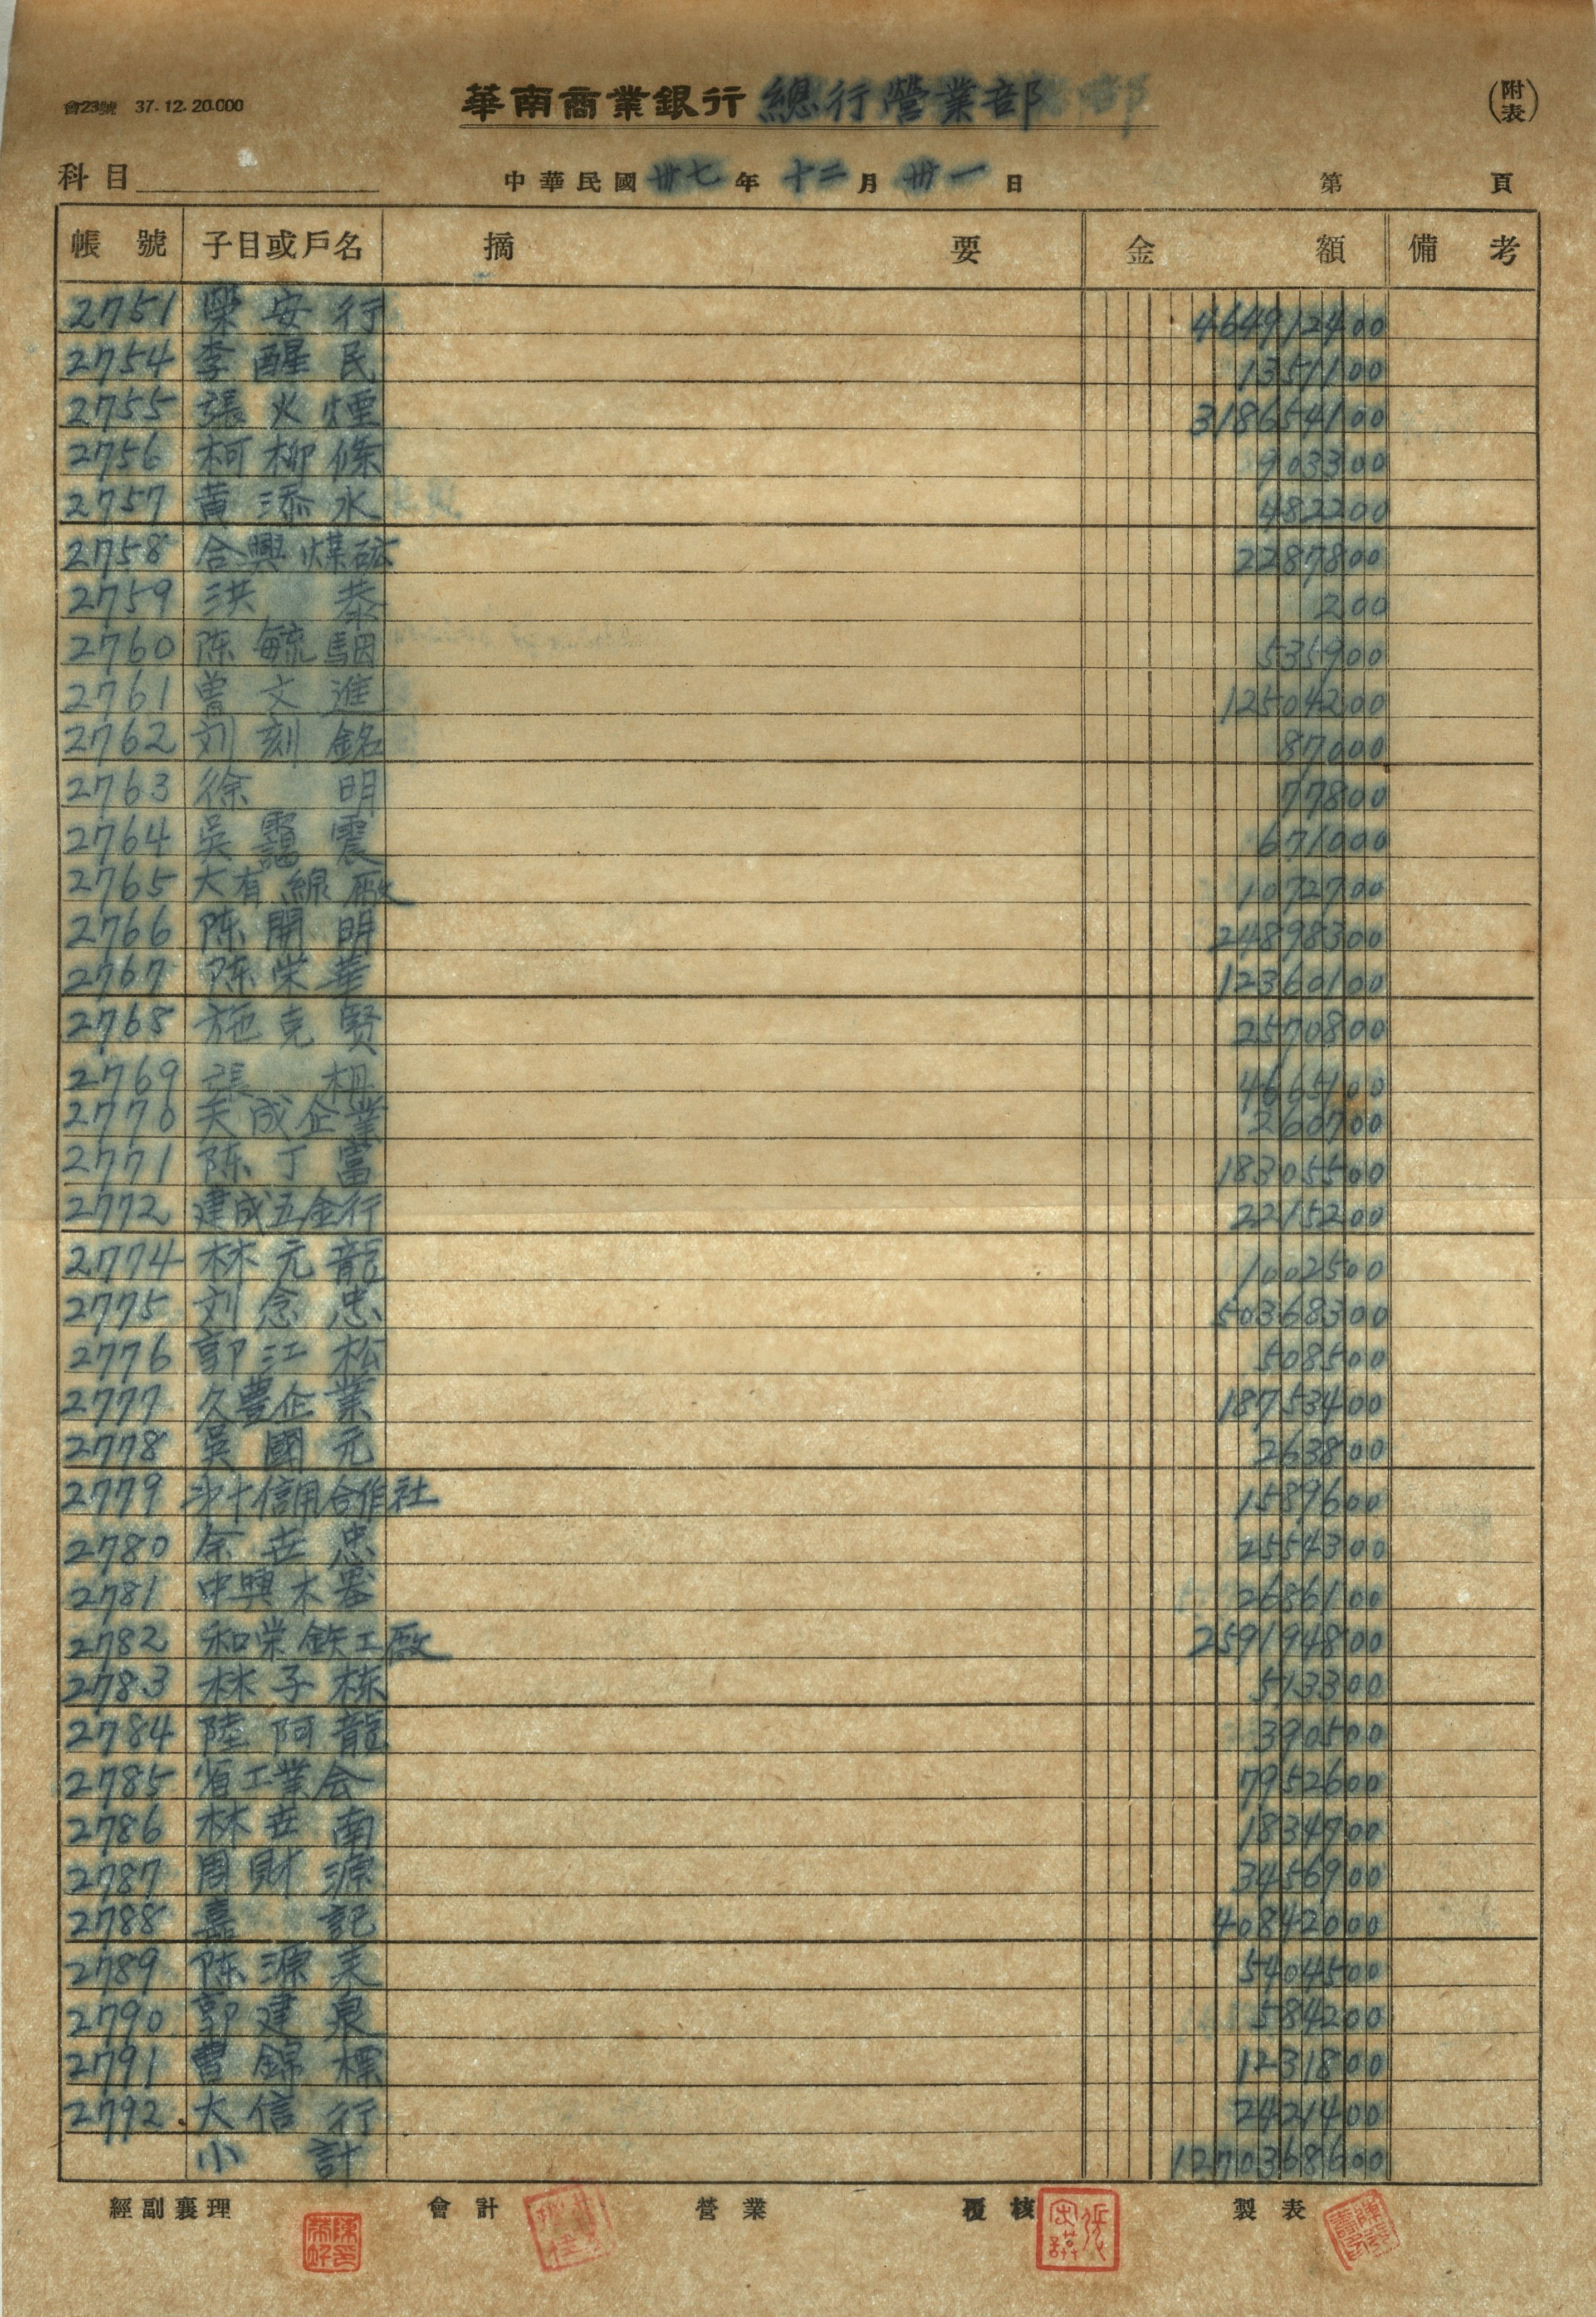 會23號 37.12.20.000
華南商業銀行 總行營業部
(附表)
科目 中華民國 卅七 年 十二 月 卅一 日 第 頁
帳號 子目或戶名 摘要 金額 備考
2751 樂安行 4649124 00
2754 李醒民 13511 00
2755 張火煙 3186541 00
2756 柯柳條 9033 00
2757 黃添水 4822 00
2758 合興煤砿 22878 00
2759 洪恭 2 00
2760 陈毓駰 5359 00
2761 曾文進 125042 00
2762 刘刻銘 870 00
2763 徐明 778 00
2764 吳靄震 6710 00
2765 大有線廠 10727 00
2766 陈開明 248983 00
2767 陈栄華 123601 00
2768 施克賢 25708 00
2769 張枏 46651 00
2770 天成企業 2607 00
2771 陈丁富 183055 00
2772 建成五金行 22152 00
2774 林元龍 10025 00
2775 刘念忠 503683 00
2776 郭江松 5085 00
2777 久豊企業 187534 00
2778 吳國元 2638 00
2779 㐧十信用合作社 15896 00
2780 余世忠 25543 00
2781 中興木 26861 00
2782 和栄鉄工廠 2591948 00
2783 林子栋 5133 00
2784 陸阿龍 3905 00
2785 省工業会 79526 00
2786 林世南 18347 00
2787 周財源 34569 00
2788 嘉記 408420 00
2789 陈源美 54045 00
2790 郭建泉 5842 00
2791 曹錦標 12318 00
2792 大信行 24214 00
小計 12703686 00
經副襄理 會計 營業 覆核 製表